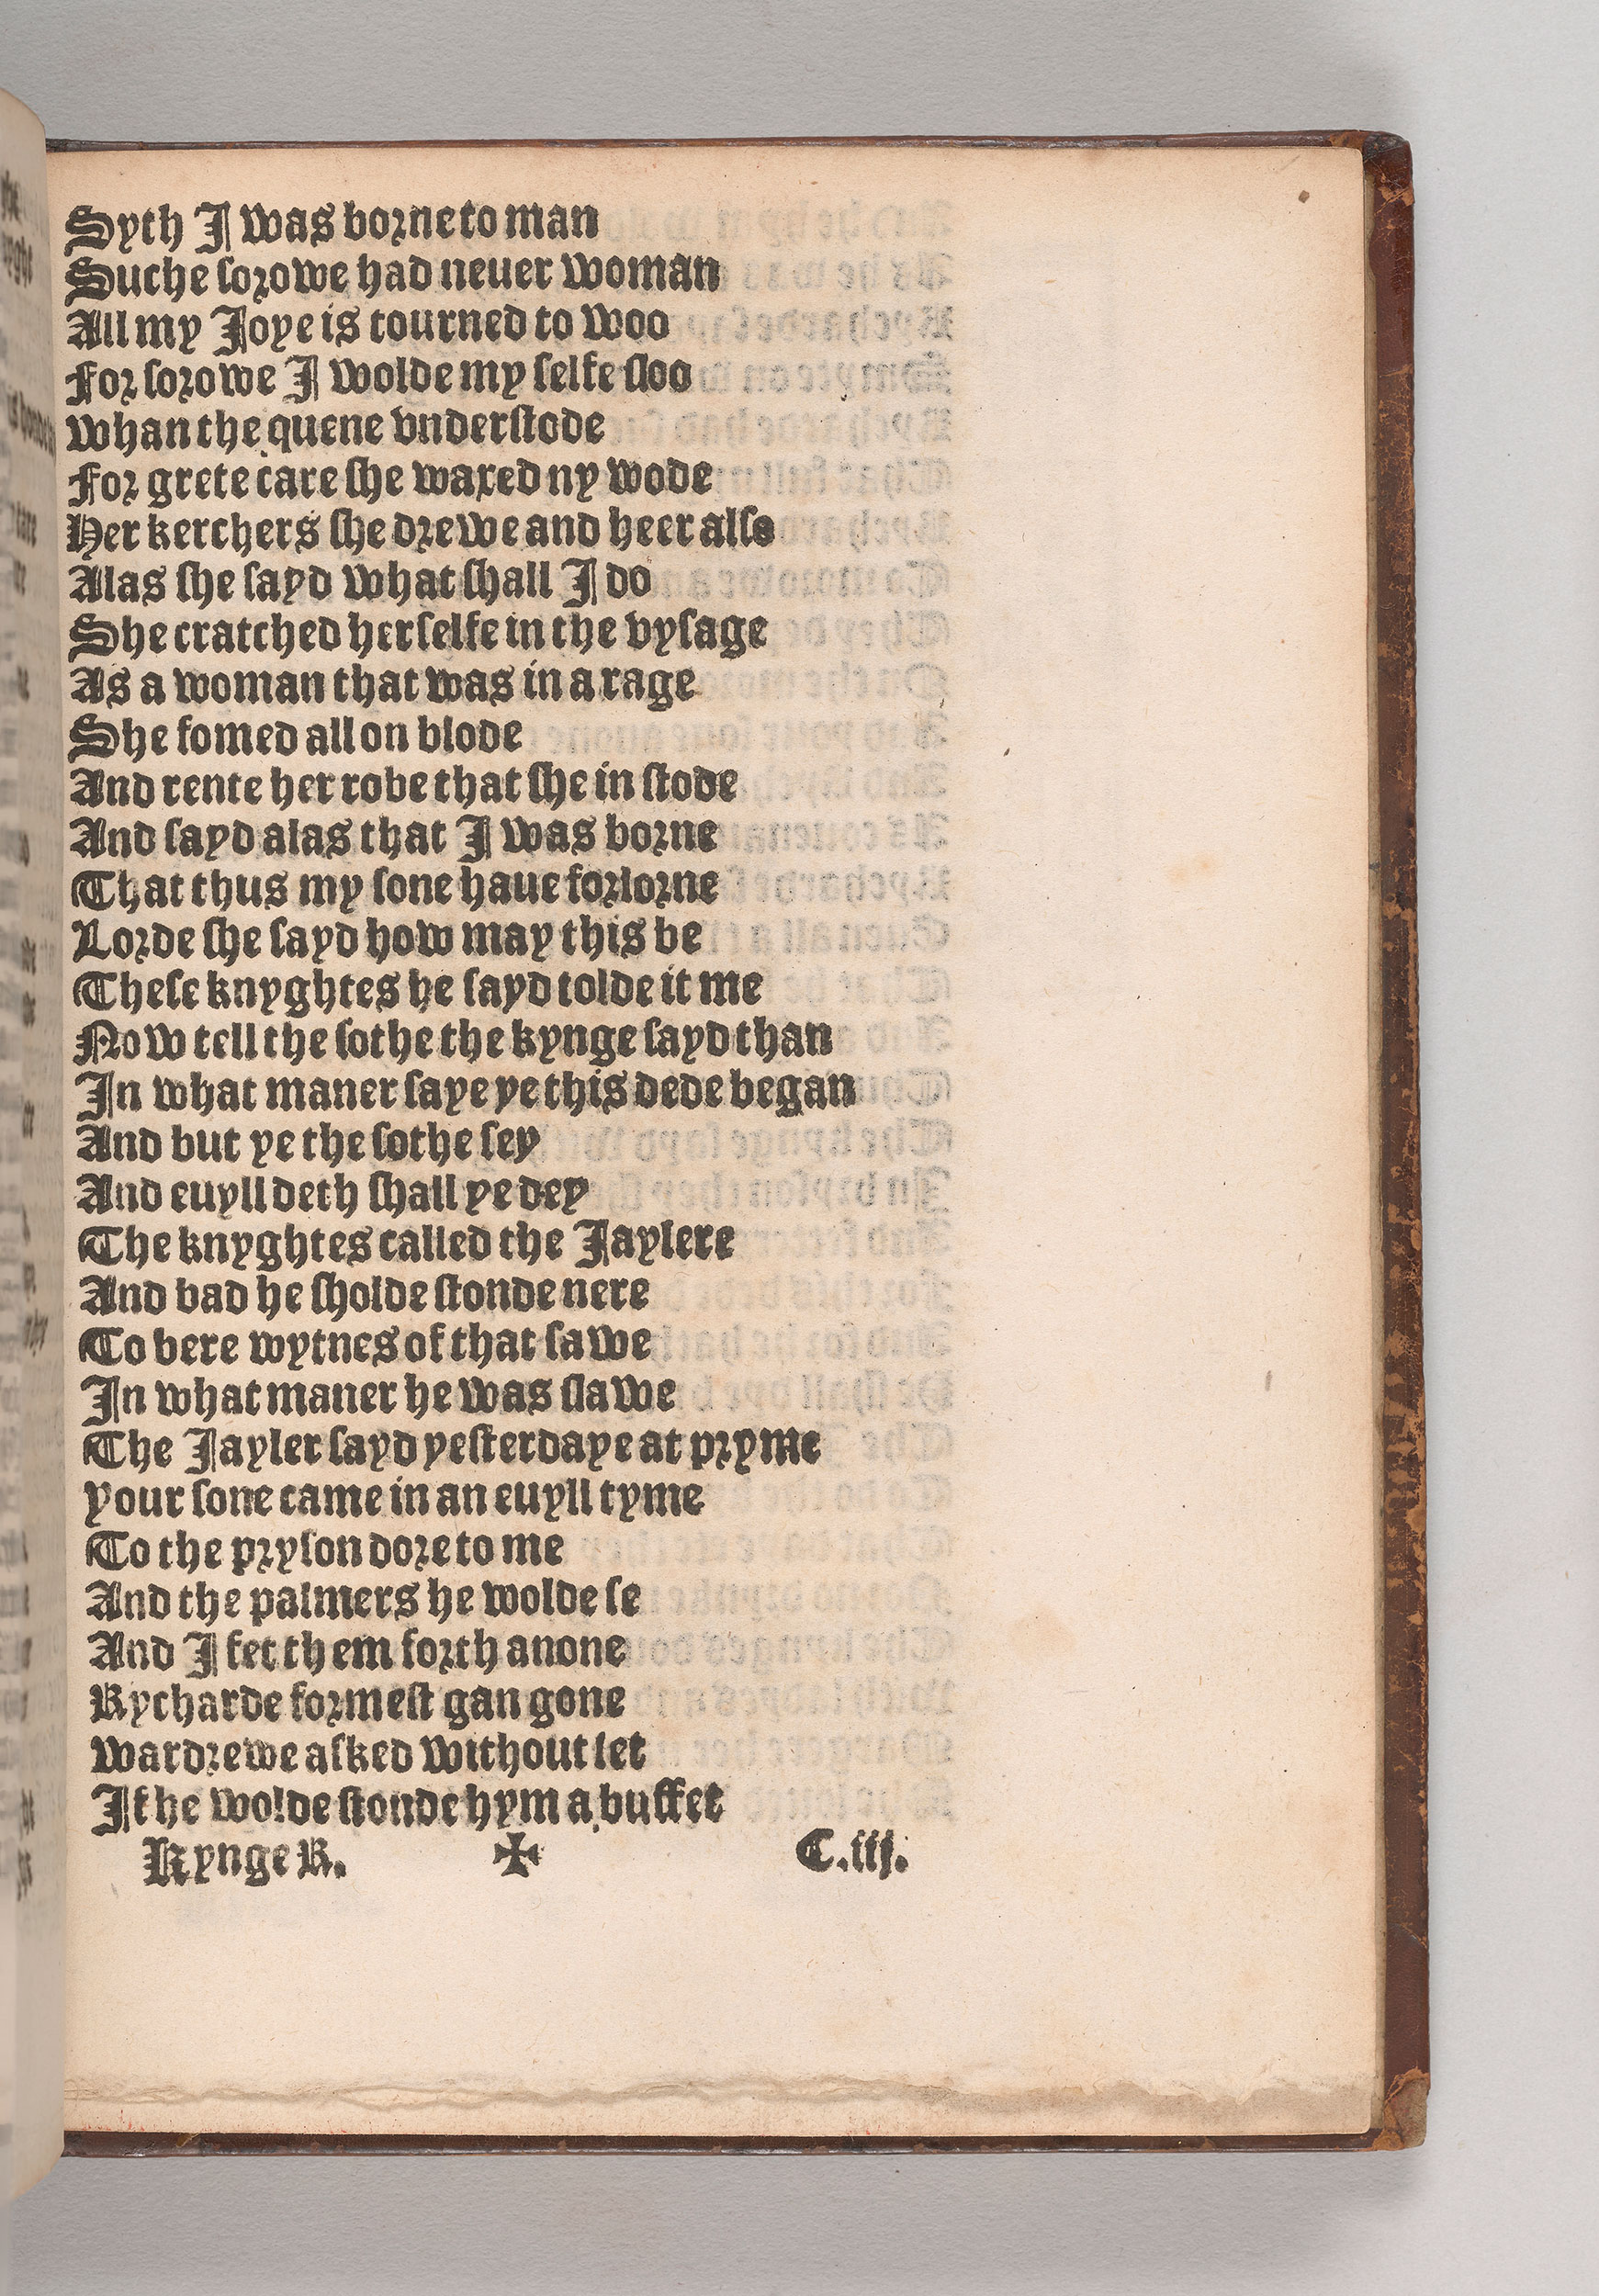 Syth I was borne to man
Suche sorowe had neuer woman
All my Joye is tourned to woo
For sorowe I wolde my selfe sloo
Whan the quene vnderstode
For grete care she waxed ny wode
Her kerchers she drewe and heer also
Alas she sayd what shall I do
She cratched her selfe in the vysage
As a woman that was in a rage
She fomed all on blode
And rente her robe that she in stode
And sayd alas that I was borne
That thus my sone haue forlorne
Lorde she sayd how may this be
These knyghtes he sayd tolde it me
Now tell the sothe the kynge sayd than
In what maner saye ye this dede began
And but ye the sothe sey
And euyll deth shall ye dey
The knyghtes called the Jaylere
And bad he sholde stonde nere
To bere wytnes of that sawe
In what maner he was slawe
The Jayler sayd yesterdaye at pryme
your sone came in an euyll tyme
To the pryson dore to me
And the palmers he wolde se
And I fet them forth anone
Rycharde formest gan gone
Wardrewe asked without let
If he wolde stonde hym a buffet
Kynge R. ✠ C.iij.